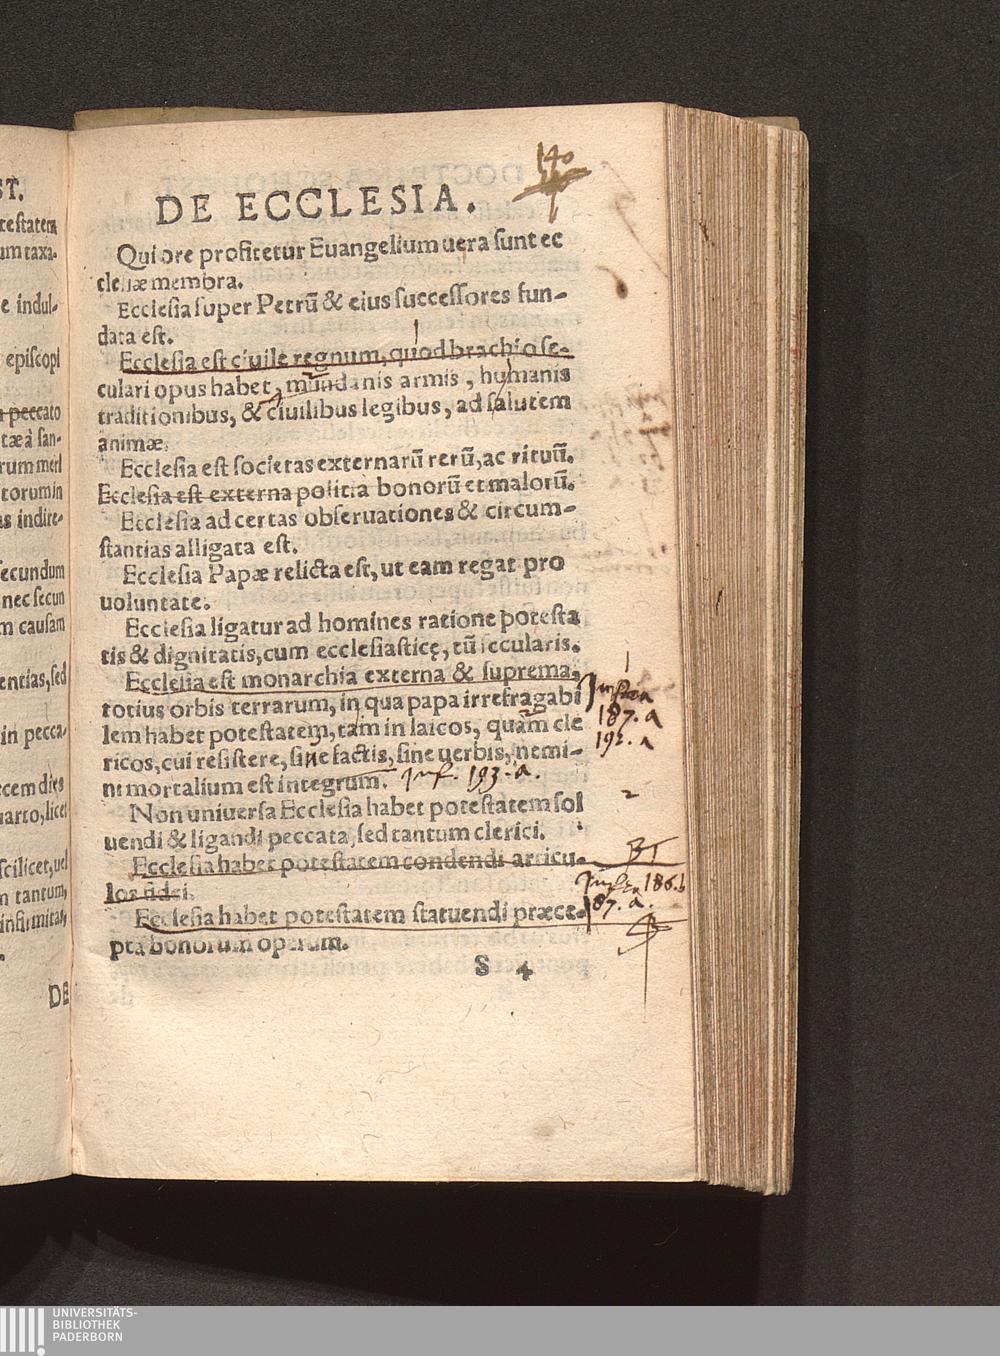 ST.
testatem
um taxa-
e indul-
episcopi
peccato
tæ à san-
rum meri
torum in
as indire-
secundum
nec secun
m causam
entias, sed
in pecca-
cem dies
uarto, licet
scilicet, uel
n tantum,
infirmitas,
DE
140
DE ECCLESIA.
Qui ore profitetur Euangelium uera sunt ec
clesiæ membra.
Ecclesia super Petrū & eius successores fun-
data est.
Ecclesia est ciuile regnum, quod brachio se-
culari opus habet, mundanis armis, humanis
traditionibus, & ciuilibus legibus, ad salutem
animæ.
Ecclesia est societas externarū rerū, ac rituū.
Ecclesia est externa politia bonorū et malorū.
Ecclesia ad certas obseruationes & circum-
stantias alligata est.
Ecclesia Papæ relicta est, ut eam regat pro
uoluntate.
Ecclesia ligatur ad homines ratione potesta
tis & dignitatis, cum ecclesiasticę, tū secularis.
Ecclesia est monarchia externa & suprema,
totius orbis terrarum, in qua papa irrefragabi
lem habet potestatem, tam in laicos, quàm cle
ricos, cui resistere, siue factis, siue uerbis, nemi-
ni mortalium est integrum. inf. 193. a.
Non uniuersa Ecclesia habet potestatem sol
uendi & ligandi peccata, sed tantum clerici.
Ecclesia habet potestatem condendi articu-
los fidei.
Ecclesia habet potestatem statuendi præce-
pta bonorum operum.
S 4
1
Infra
187. a
192. a
2
Infra 186. b
187. a.
UNIVERSITÄTS-
BIBLIOTHEK
PADERBORN